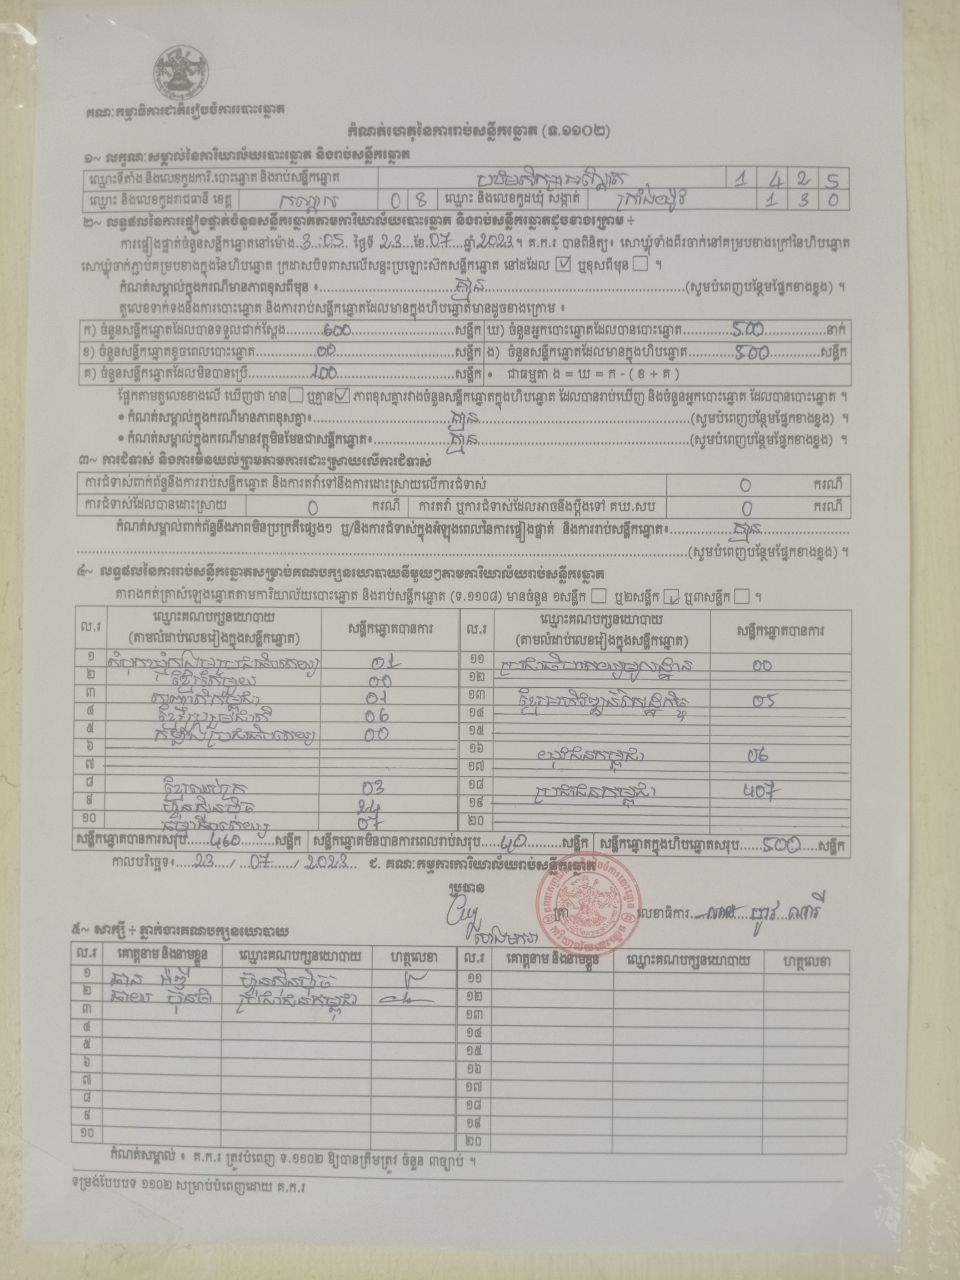 គណៈកម្មាធិការជាតិរៀបចំការបោះឆ្នោត
កំណត់ហេតុនៃការរាប់សន្លឹកឆ្នោត (ទ.១១០២)
១~ លក្ខណៈសម្គាល់នៃការិយាល័យបោះឆ្នោត និងរាប់សន្លឹកឆ្នោត
ឈ្មោះទីតាំង និងលេខកូដការិ.បោះឆ្នោត និងរាប់សន្លឹកឆ្នោត 1 4 2 5
ឈ្មោះ និងលេខកូដរាជធានី ខេត្ត កណ្ដាល 0 8 ឈ្មោះ និងលេខកូដឃុំ សង្កាត់ 1 3 0
២~ លទ្ធផលនៃការផ្ទៀងផ្ទាត់ចំនួនសន្លឹកឆ្នោតតាមការិយាល័យបោះឆ្នោត និងរាប់សន្លឹកឆ្នោតដូចខាងក្រោម ÷
ការផ្ទៀងផ្ទាត់ចំនួនសន្លឹកឆ្នោតនៅម៉ោង 3:05 ថ្ងៃទី 23 ខែ 07 ឆ្នាំ 2023។ គ.ក.រ បានពិនិត្យ៖ សោឃ្លុំទាំងពីរចាក់នៅគម្របខាងក្រៅនៃហិបឆ្នោត
សោឃ្លុំចាក់ភ្ជាប់គម្របខាងក្នុងនៃហិបឆ្នោត ក្រដាសបិទពាសលើសន្ទះប្រឡោះស៊កសន្លឹកឆ្នោត នៅដដែល ☑ ឬខុសពីមុន ☐ ។
កំណត់សម្គាល់ក្នុងករណីមានភាពខុសពីមុន ៖ គ្មាន (សូមបំពេញបន្ថែមផ្នែកខាងខ្នង) ។
តួលេខទាក់ទងនឹងការបោះឆ្នោត និងការរាប់សន្លឹកឆ្នោតដែលមានក្នុងហិបឆ្នោតមានដូចខាងក្រោម ៖
ក) ចំនួនសន្លឹកឆ្នោតដែលបានទទួលជាក់ស្តែង 600 សន្លឹក ឃ) ចំនួនអ្នកបោះឆ្នោតដែលបានបោះឆ្នោត 500 នាក់
ខ) ចំនួនសន្លឹកឆ្នោតខូចពេលបោះឆ្នោត 00 សន្លឹក ង) ចំនួនសន្លឹកឆ្នោតដែលមានក្នុងហិបឆ្នោត 500 សន្លឹក
គ) ចំនួនសន្លឹកឆ្នោតដែលមិនបានប្រើ 100 សន្លឹក • ជាធម្មតា ង = ឃ = ក - ( ខ + គ )
ផ្អែកតាមតួលេខខាងលើ ឃើញថា មាន ☐ ឬគ្មាន ☑ ភាពខុសគ្នារវាងចំនួនសន្លឹកឆ្នោតក្នុងហិបឆ្នោត ដែលបានរាប់ឃើញ និងចំនួនអ្នកបោះឆ្នោត ដែលបានបោះឆ្នោត ។
• កំណត់សម្គាល់ក្នុងករណីមានភាពខុសគ្នា៖ គ្មាន (សូមបំពេញបន្ថែមផ្នែកខាងខ្នង) ។
• កំណត់សម្គាល់ក្នុងករណីមានវត្ថុមិនមែនជាសន្លឹកឆ្នោត៖ គ្មាន (សូមបំពេញបន្ថែមផ្នែកខាងខ្នង) ។
៣~ ការជំទាស់ និងការមិនយល់ព្រមតាមការដោះស្រាយលើការជំទាស់
ការជំទាស់ពាក់ព័ន្ធនឹងការរាប់សន្លឹកឆ្នោត និងការតវ៉ាទៅនឹងការដោះស្រាយលើការជំទាស់ 0 ករណី
ការជំទាស់ដែលបានដោះស្រាយ 0 ករណី ការតវ៉ា ឬការជំទាស់ដែលអាចនឹងប្តឹងទៅ គឃ.សប 0 ករណី
កំណត់សម្គាល់ពាក់ព័ន្ធនឹងភាពមិនប្រក្រតីផ្សេងៗ ឬ/និងការជំទាស់ក្នុងអំឡុងពេលនៃការផ្ទៀងផ្ទាត់ និងការរាប់សន្លឹកឆ្នោត៖ គ្មាន
(សូមបំពេញបន្ថែមផ្នែកខាងខ្នង) ។
៤~ លទ្ធផលនៃការរាប់សន្លឹកឆ្នោតសម្រាប់គណបក្សនយោបាយនីមួយៗតាមការិយាល័យរាប់សន្លឹកឆ្នោត
តារាងកត់ត្រាសំឡេងឆ្នោតតាមការិយាល័យបោះឆ្នោត និងរាប់សន្លឹកឆ្នោត (ទ.១១០៨) មានចំនួន ១សន្លឹក ☐ ឬ២សន្លឹក ☑ ឬ៣សន្លឹក ☐ ។
ល.រ ឈ្មោះគណបក្សនយោបាយ (តាមលំដាប់លេខរៀងក្នុងសន្លឹកឆ្នោត) សន្លឹកឆ្នោតបានការ ល.រ ឈ្មោះគណបក្សនយោបាយ (តាមលំដាប់លេខរៀងក្នុងសន្លឹកឆ្នោត) សន្លឹកឆ្នោតបានការ
១ សំបុកឃ្មុំសង្គមប្រជាធិបតេយ្យ 01 ១១ ប្រជាធិបតេយ្យមូលដ្ឋាន 00
២ ខ្មែររួបរួម 00 ១២
៣ 01 ១៣ ខ្មែរអភិវឌ្ឍន៍សេដ្ឋកិច្ច 05
៤ ខ្មែររួបរួមជាតិ 06 ១៤
៥ កម្លាំងប្រជាធិបតេយ្យ 00 ១៥
៦ ១៦ យុវជនកម្ពុជា 06
៧ ១៧
៨ ខ្មែរអភិរក្ស 03 ១៨ ប្រជាជនកម្ពុជា 407
៩ ហ៊្វុនស៊ិនប៉ិច 24 ១៩
១០ 07 ២០
សន្លឹកឆ្នោតបានការសរុប 460 សន្លឹក សន្លឹកឆ្នោតមិនបានការពេលរាប់សន្លឹក 40 សន្លឹក សន្លឹកឆ្នោតក្នុងហិបឆ្នោតសរុប 500 សន្លឹក
កាលបរិច្ឆេទ៖ 23 / 07 / 2023 ជ. គណៈកម្មការការិយាល័យរាប់សន្លឹកឆ្នោត
ប្រធាន
ត្រា លេខាធិការ
៥~ សាក្សី ÷ ភ្នាក់ងារគណបក្សនយោបាយ
ល.រ គោត្តនាម និងនាមខ្លួន ឈ្មោះគណបក្សនយោបាយ ហត្ថលេខា ល.រ គោត្តនាម និងនាមខ្លួន ឈ្មោះគណបក្សនយោបាយ ហត្ថលេខា
១ ហ៊្វុនស៊ិនប៉ិច ១១
២ ប្រជាជនកម្ពុជា ១២
៣ ១៣
៤ ១៤
៥ ១៥
៦ ១៦
៧ ១៧
៨ ១៨
៩ ១៩
១០ ២០
កំណត់សម្គាល់ ៖ គ.ក.រ ត្រូវបំពេញ ទ.១១០២ ឱ្យបានត្រឹមត្រូវ ចំនួន ៣ច្បាប់ ។
ទម្រង់បែបបទ ១១០២ សម្រាប់បំពេញដោយ គ.ក.រ